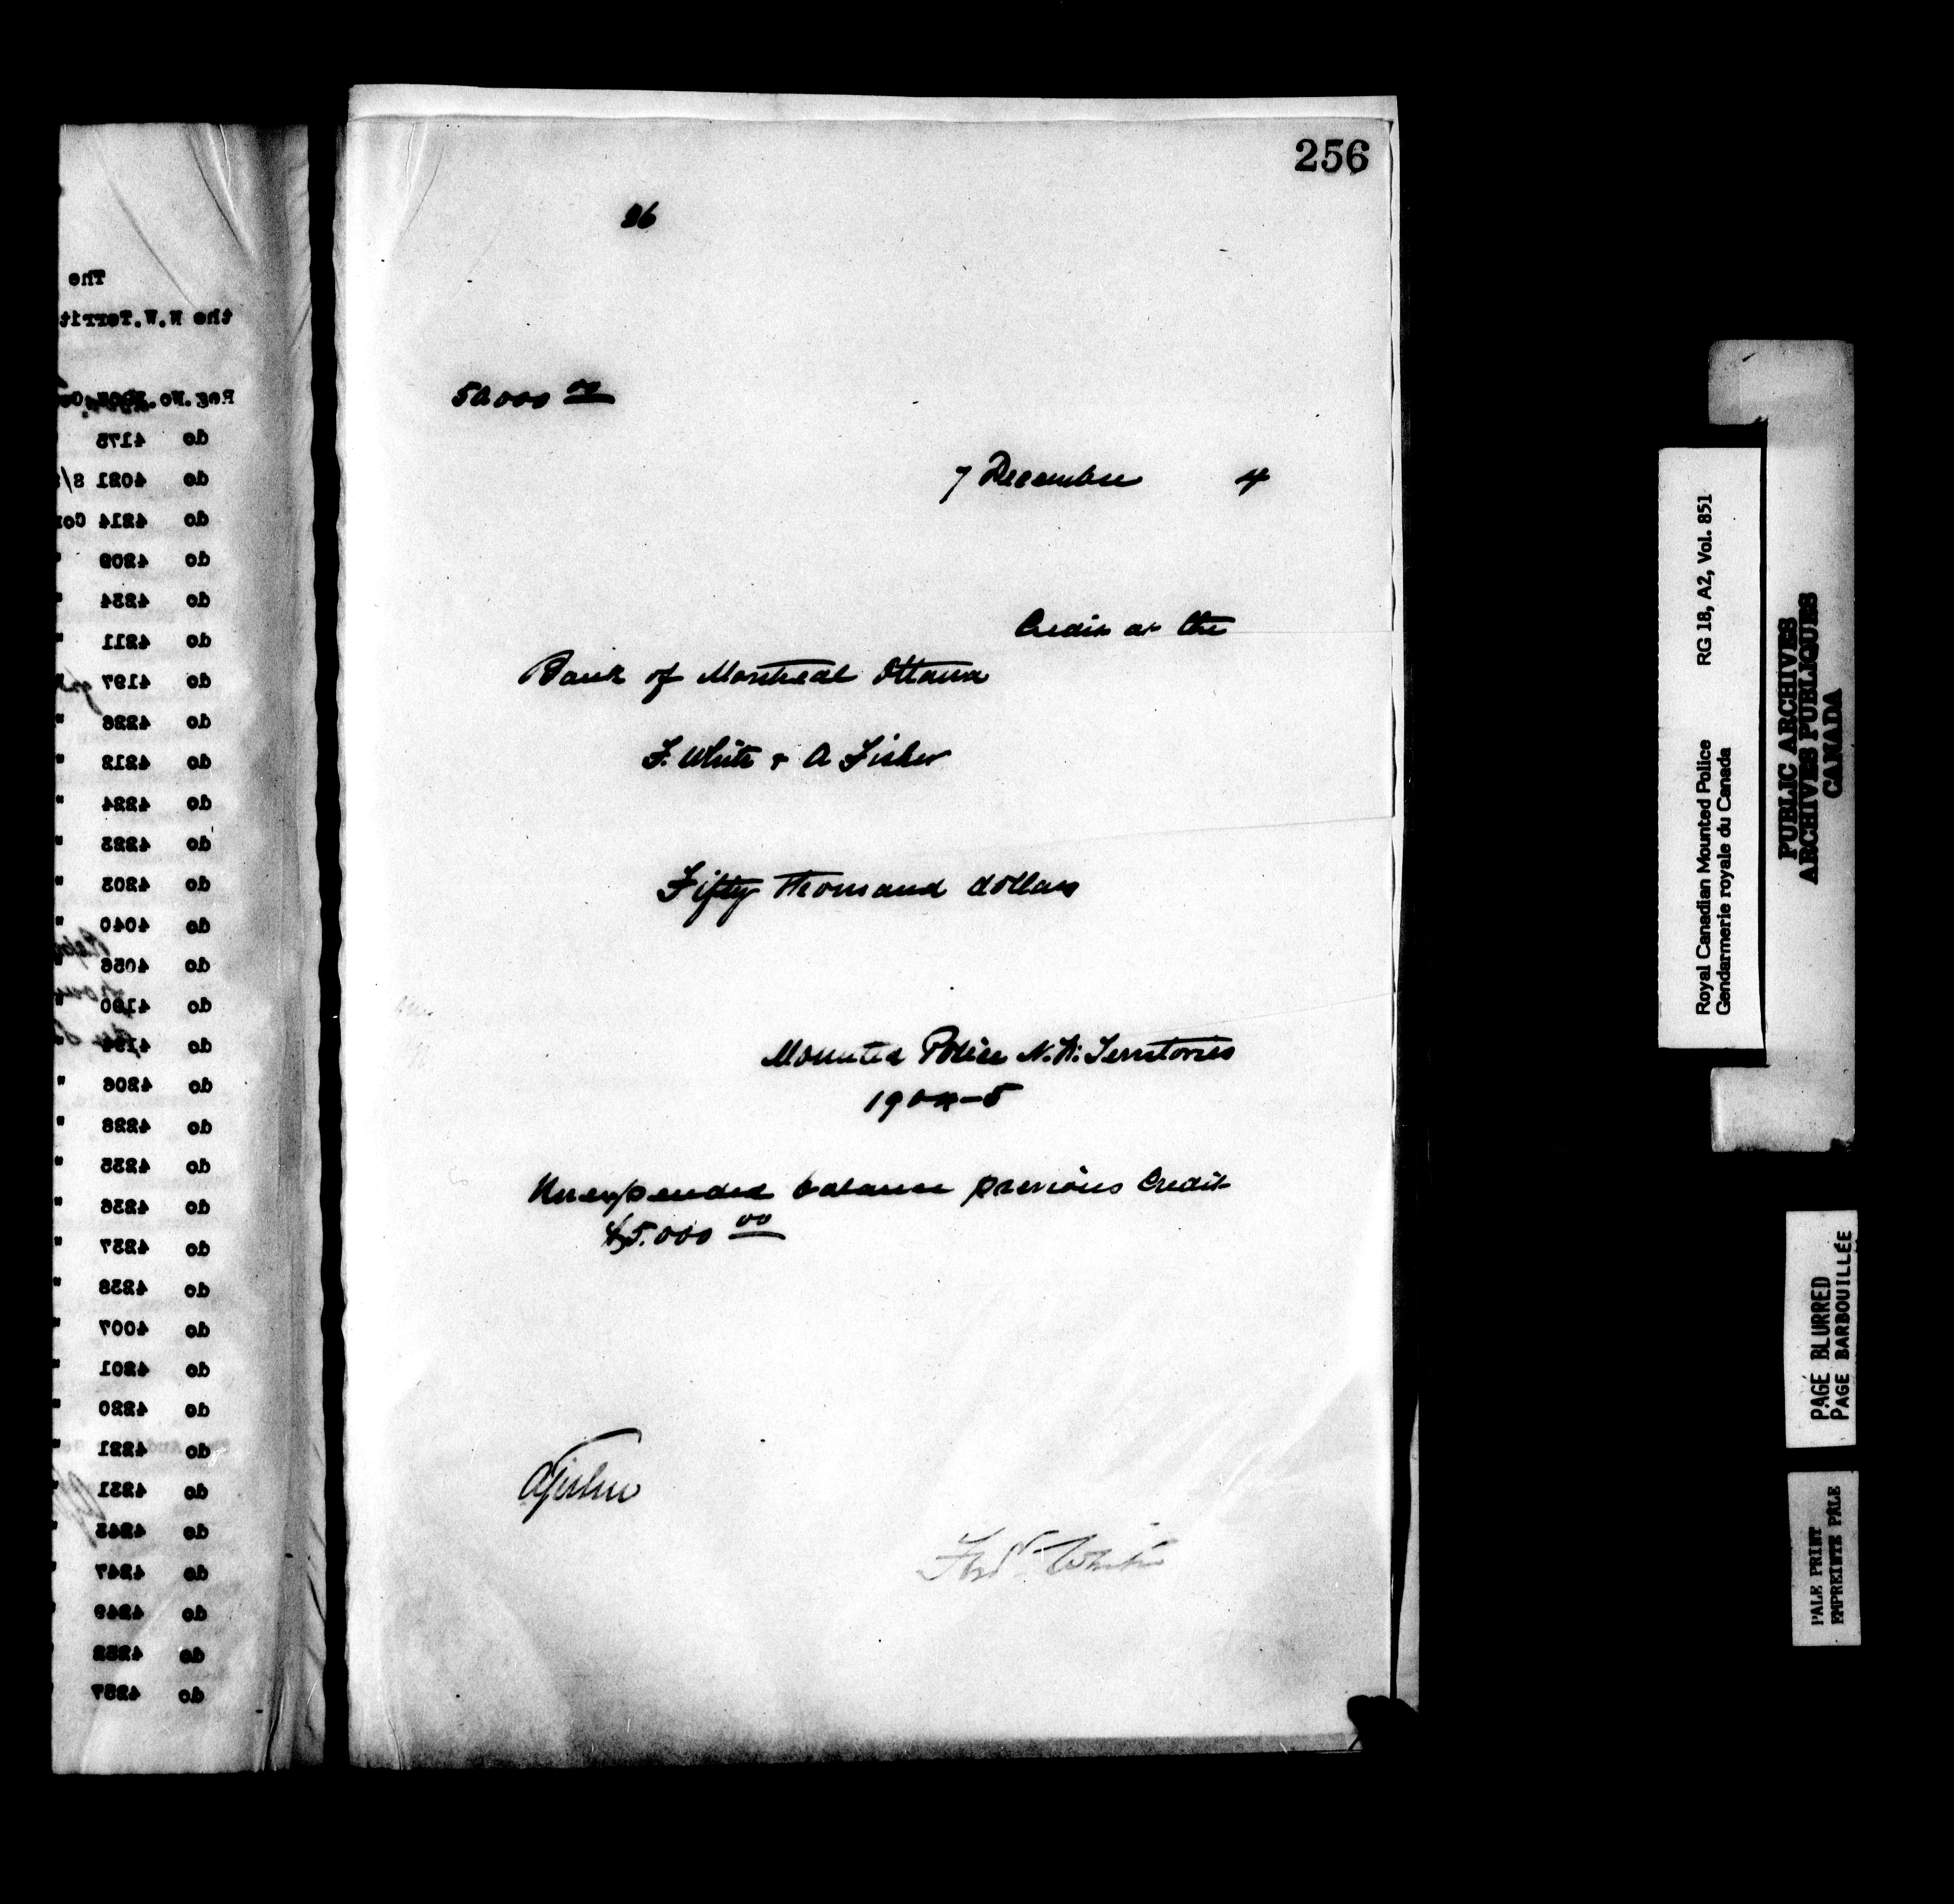 256
26
50000 00
7 December 4
Credit at the
Bank of Montreal Ottawa
F. White & A Fisher
Fifty Thousand dollars
Mounted Police N.W. Territories
1904-5
Unexpended balance previous Credit
$5.000 00
AFisher
Fred White
The
the N.W.Territ
Reg.No.
do 4175
do 4021 S/
do 4214 Cor
do 4209 "
do 4234 "
do 4211 "
do 4197
do 4226 "
do 4212 "
do 4224 "
do 4223 "
do 4203 "
do 4040 "
do 4056
do 4190 "
do
do 4206 "
do 4228 "
do 4235 "
do 4236 "
do 4237 "
do 4238 "
do 4007 "
do 4201 "
do 4220 "
do 4221 "
do 4231
do 4243 "
do 4247 "
do 4249
do 4252
do 4257
Royal Canadian Mounted Police RG 18, A2, Vol. 851
Gendarmerie royale du Canada
PUBLIC ARCHIVES
ARCHIVES PUBLIQUES
CANADA
PAGE BLURRED
PAGE BARBOUILLÉE
PALE PRINT
EMPREINTE PÂLE